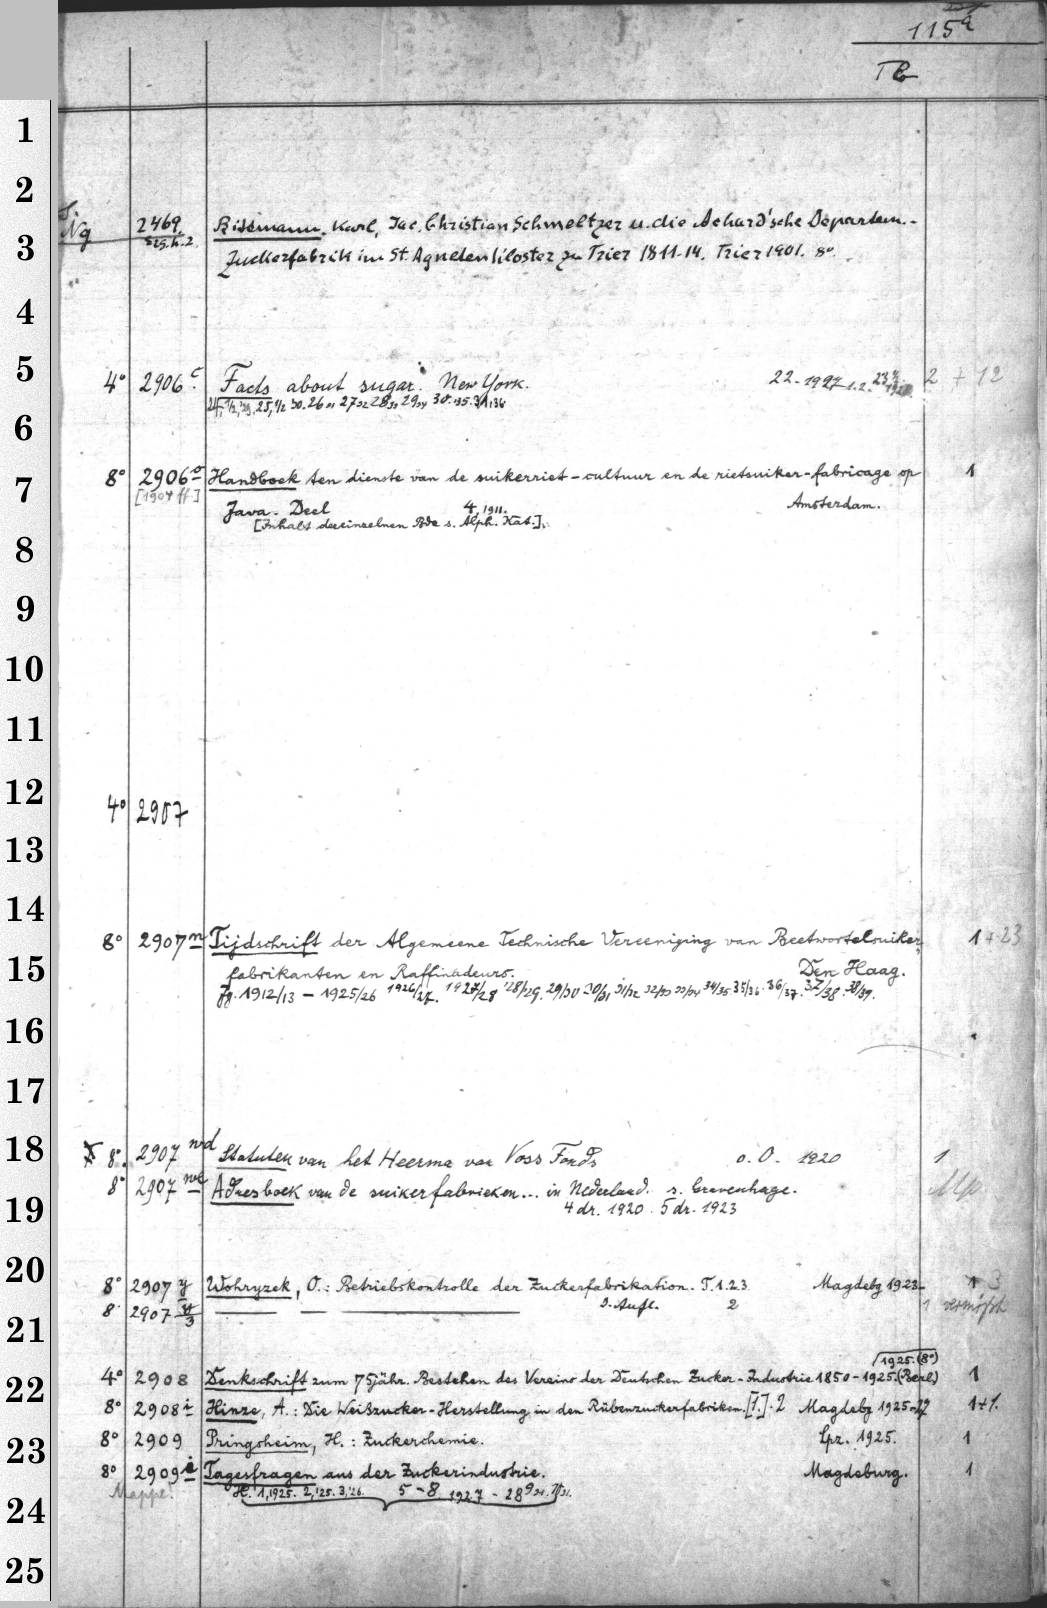 115a
Tb
1
2
2469 Bittmann, Karl, Jac. Christian Schmeltzer u. die Achard'sche Departem.-
3
Zuckerfabrik im St. Agnetenkloster zu Trier 1811-14. Trier 1901. 8°.
4
5
4° 2906 c Facts about sugar. New York. 22-1927 2 + 12
6
8° 2906 o Handboek ten dienste van de suikerriet-cultuur en de rietsuiker-fabricage op 1
7
[1904 ff] Java. Deel 4, 1911. Amsterdam.
[Inhalt der einzelnen Bde s. Alph. Kat.].
8
9
10
11
12
4° 2907
13
14
8° 2907 n Tijdschrift der Algemeene Technische Vereeniging van Beetwortelsuiker- 1 + 23
15
fabrikanten en Raffinadeurs. Den Haag.
Jg. 1912/13 - 1925/26 1926/27. 1927/28 '28/29. 29/30 30/31 31/32 32/33 33/34 34/35 35/36. 36/37. 37/38. 38/39.
16
17
18
8° 2907 nd Statuten van het Heerma van Voss Fonds o. O. 1920 1
8° 2907 ne Adresboek van de suikerfabrieken... in Nederland. s. Gravenhage.
19
4 dr. 1920. 5 dr. 1923
20
8° 2907 y Wohryzek, O.: Betriebskontrolle der Zuckerfabrikation. T. 1.2.3 Magdebg 1923- 1 3
8° 2907 y/3 2. Aufl. 2 1 vermißt
21
1925. (8°)
22
4° 2908 Denkschrift zum 75jähr. Bestehen des Vereins der Deutschen Zucker-Industrie 1850-1925. (Berl.) 1
8° 2908 i Hinze, A.: Die Weißzucker-Herstellung in den Rübenzuckerfabriken. [1.]. 2 Magdebg 1925-27 1+1.
23
8° 2909 Pringsheim, H.: Zuckerchemie. Lpz. 1925. 1
8° 2909 i Tagesfragen aus der Zuckerindustrie. Magdeburg. 1
Mappe. H. 1,1925. 2,'25. 3,'26. 5-8 1927-28
24
25